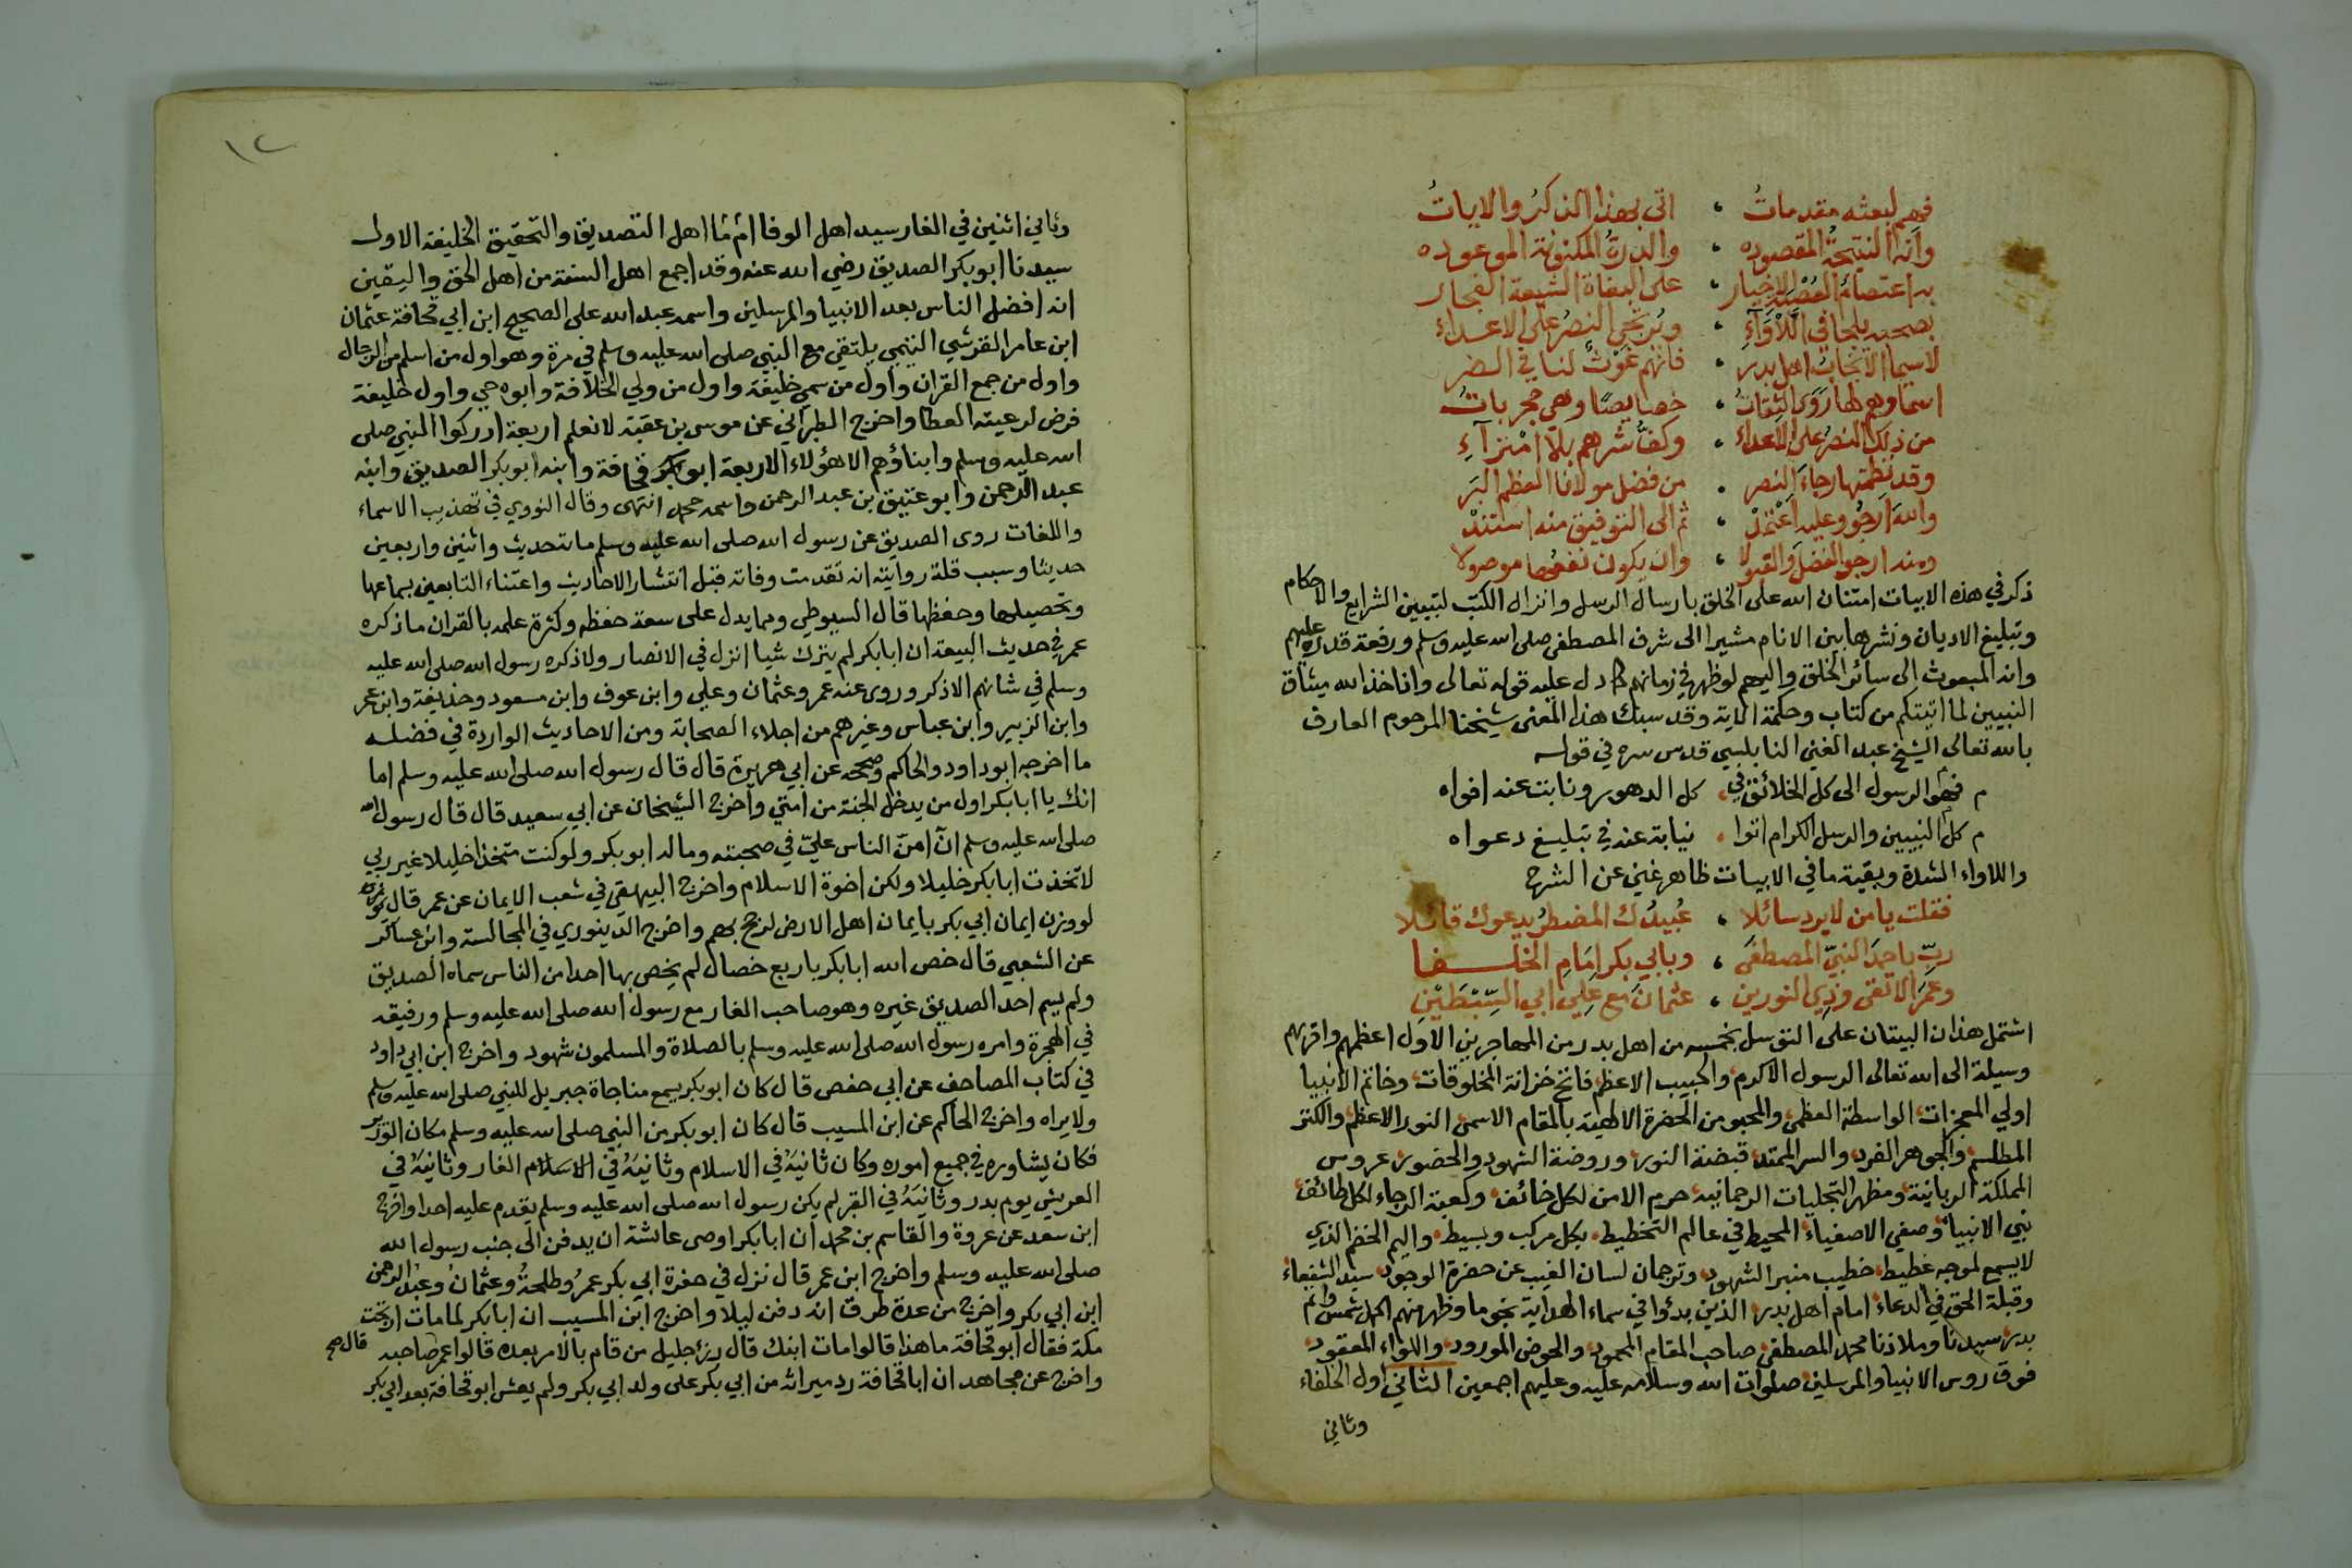 فهم لبعثه مقدمات ، اتى بهذا الذكر والايات
وانه النتيجة المقصوده ، والدرة المكنونة الموعوده
به اعتصام الاخيار ، على البغاة الشيعة الفجار
بصحبه يلجا في اللأواء ، ويرتجى النصر على الاعداء
لاسيما الانجاب اهل بدر ، فانهم غوث لنا في الضر
اسماؤهم لها روى الثقات ، خصايصا وهي مجربات
من ذلك النصر على الاعداء ، وكف شرهم بلا امتراء
وقد نظمتها رجاء النصر ، من فضل مولانا العظيم البر
والله ارجو وعليه اعتمد ، ثم الى التوفيق منه استند
ومنه ارجو الفضل والقبولا ، وان يكون نفعها موصولا
ذكر في هذه الابيات امتنان الله على الخلق بارسال الرسل وانزال الكتب لتبيين الشرايع والاحكام
وتبليغ الاديان ونشرها بين الانام مشيرا الى شرف المصطفى صلى الله عليه وسلم ورفعة قدره عليهم
وانه المبعوث الى سائر الخلق واليهم لو ظهر في زمانهم كما دل عليه قوله تعالى واذ اخذ الله ميثاق
النبيين لما اتيتكم من كتاب وحكمة الاية وقد سبك هذا المعنى شيخنا المرحوم العارف
بالله تعالى الشيخ عبد الغني النابلسي قدس سره في قوله
م فهو الرسول الى كل الخلائق في ، كل الدهور ونابت عنه افواه
م كل النبيين والرسل الكرام اتوا ، نيابة عنه في تبليغ دعواه
واللاواء الشدة وبقية ما في الابيات ظاهر غني عن الشرح
فقلت يا من لا يرد سائلا ، عبيدك المضطر يدعوك قائلا
رب باحمد النبي المصطفى ، وبابي بكر امام الخلفا
وعمر الاتقى وذي النورين ، عثمان مع علي ابي السبطين
اشتمل هذان البيتان على التوسل بخمسه من اهل بدر من المهاجرين الاول اعظمهم واقربهم
وسيلة الى الله تعالى الرسول الاكرم والحبيب الاعظم فاتح خزانة المخلوقات وخاتم الانبيا
اولي المعجزات الواسطة العظمى والمحبو من الحضرة الالهية بالمقام الاسمى النور الاعظم والكنز
المطلسم والجوهر الفرد والسر الممتد قبضة النور وروضة الشهود والحضور عروس
المملكة الربانية ومظهر التجليات الرحمانيه حرم الامن لكل خائف وكعبة الرجاء لكل طائف
نبي الانبياء وصفي الاصفياء المحيط في عالم التخطيط بكل مركب وبسيط واليم الخضم الذي
لا يسمع لموجه غطيط خطيب منبر الشهود وترجمان لسان الغيب عن حضرة الوجود سيد الشفعاء
وقبلة الحق في الدعاء امام اهل بدر الذين بدئوا في سماء الهداية نجوما وظهر منهم اكمل شمس واتم
بدر سيدنا وملاذنا محمد المصطفى صاحب المقام المحمود والحوض المورود واللواء المعقود
فوق روس الانبيا والمرسلين صلوات الله وسلامه عليه وعليهم اجمعين الثاني اول الخلفاء
وثاني
١٢
وثاني اثنين في الغار سيد اهل الوفا امام اهل التصديق والتحقيق الخليفة الاول
سيدنا ابو بكر الصديق رضي الله عنه وقد اجمع اهل السنة من اهل الحق واليقين
انه افضل الناس بعد الانبيا والمرسلين واسمه عبد الله على الصحيح ابن ابي قحافة عثمان
ابن عامر القرشي التيمي يلتقي مع النبي صلى الله عليه وسلم في مرة وهو اول من اسلم من الرجال
واول من جمع القران واول من سمي خليفة واول من ولي الخلافة وابوه حي واول خليفة
فرض له رعيته العطا واخرج الطبراني عن موسى بن عقبة لا نعلم اربعة ادركوا النبي صلى
الله عليه وسلم وابناؤهم الا هؤلاء الاربعة ابو قحافة وابنه ابو بكر الصديق وابنه
عبد الرحمن وابو عتيق بن عبد الرحمن واسمه محمد انتهى وقال النووي في تهذيب الاسماء
واللغات روى الصديق عن رسول الله صلى الله عليه وسلم مائة حديث واثنين واربعين
حديثا وسبب قلة روايته انه تقدمت وفاته قبل انتشار الاحاديث واعتناء التابعين بسماعها
وتحصيلها وحفظها قال السيوطي ومما يدل على سعة حفظه وكثرة علمه بالقران ما ذكره
عمر في حديث البيعة ان ابا بكر لم يترك شيا انزل في الانصار ولا ذكره رسول الله صلى الله عليه
وسلم في شانهم الا ذكر وروى عنه عمر وعثمان وعلي وابن عوف وابن مسعود وحذيفة وابن عمر
وابن الزبير وابن عباس وغيرهم من اجلاء الصحابة ومن الاحاديث الواردة في فضله
ما اخرجه ابو داود والحاكم وصححه عن ابي هريرة قال قال رسول الله صلى الله عليه وسلم اما
انك يا ابا بكر اول من يدخل الجنة من امتي واخرج الشيخان عن ابي سعيد قال قال رسول الله
صلى الله عليه وسلم ان امن الناس علي في صحبته وماله ابو بكر ولو كنت متخذا خليلا غير ربي
لاتخذت ابا بكر خليلا ولكن اخوة الاسلام واخرج البيهقي في شعب الايمان عن عمر قال
لو وزن ايمان ابي بكر بايمان اهل الارض لرجح بهم واخرج الدينوري في المجالسة وابن عساكر
عن الشعبي قال خص الله ابا بكر باربع خصال لم يخص بها احدا من الناس سماه الصديق
ولم يسم احد الصديق غيره وهو صاحب الغار مع رسول الله صلى الله عليه وسلم ورفيقه
في الهجرة وامره رسول الله صلى الله عليه وسلم بالصلاة والمسلمون شهود واخرج ابن ابي داود
في كتاب المصاحف عن ابي حفص قال كان ابو بكر يسمع مناجاة جبريل للنبي صلى الله عليه وسلم
ولا يراه واخرج الحاكم عن ابن المسيب قال كان ابو بكر من النبي صلى الله عليه وسلم مكان الوزير
فكان يشاوره في جميع اموره وكان ثانيه في الاسلام وثانيه في الغار وثانيه في
العريش يوم بدر وثانيه في القبر لم يكن رسول الله صلى الله عليه وسلم يقدم عليه احدا واخرج
ابن سعد عن عروة والقاسم بن محمد ان ابا بكر اوصى عائشة ان يدفن الى جنب رسول الله
صلى الله عليه وسلم واخرج ابن عمر قال نزل في حفرة ابي بكر عمر وطلحة وعثمان وعبد الرحمن
ابن ابي بكر واخرج من عدة طرق انه دفن ليلا واخرج ابن المسيب ان ابا بكر لما مات ارتجت
مكة فقال ابو قحافة ما هذا قالوا مات ابنك قال رزء جليل من قام بالامر بعده قالوا عمر قال صاحبه صح
واخرج عن مجاهد ان ابا قحافة رد ميراثه من ابي بكر على ولد ابي بكر ولم يعش ابو قحافة بعد ابي بكر